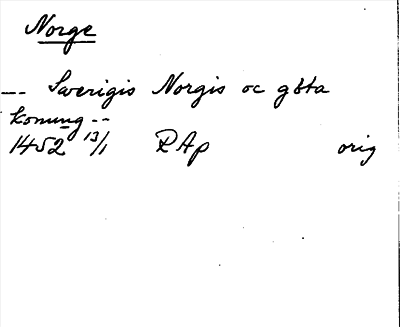 Norge
--- Swerigis Norgis oc göta
konung --
1452 13/1 RAp orig